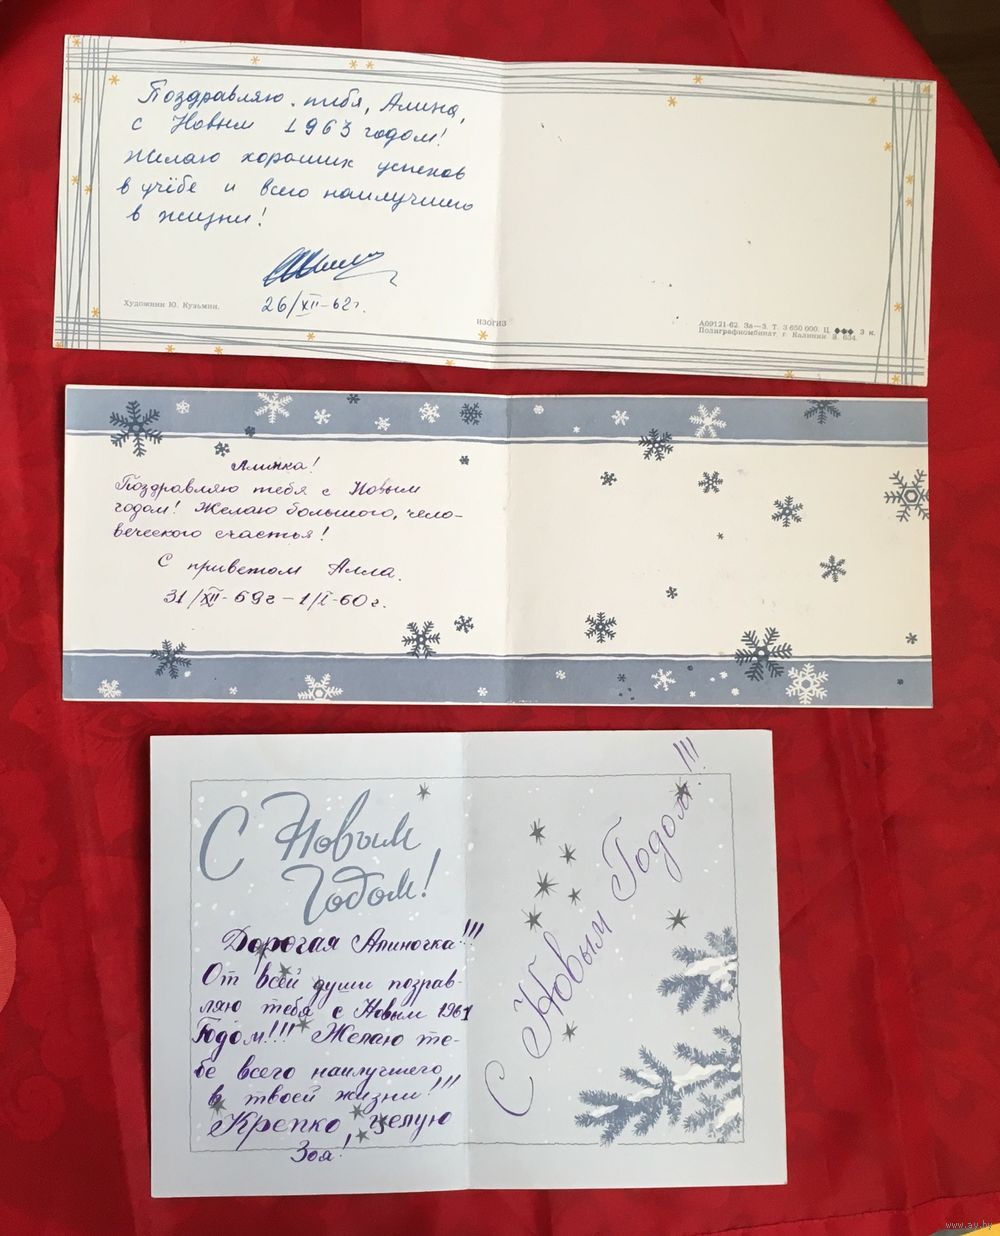 Поздравляю тебя, Алина,
с Новым 1963 годом!
Желаю хороших успехов
в учёбе и всего наилучшего
в жизни!
26/XII-62г.
Художник Ю. Кузьмин.
ИЗОГИЗ
А09121-62. За—3. Т. 3 650 000. Ц. 3 к.
Полиграфкомбинат, г. Калинин. З. 654.
Алинка!
Поздравляю тебя с Новым
годом! Желаю большого, чело-
веческого счастья!
С приветом Алла.
31/XII-59г – 1/I-60г.
С Новым
Годом!
Дорогая Алиночка!!!
От всей души поздрав-
ляю тебя с Новым 1961
Годом!!! Желаю те-
бе всего наилучшего
в твоей жизни!!!
Крепко целую
Зоя!
С Новым Годом!!!
www.ay.by